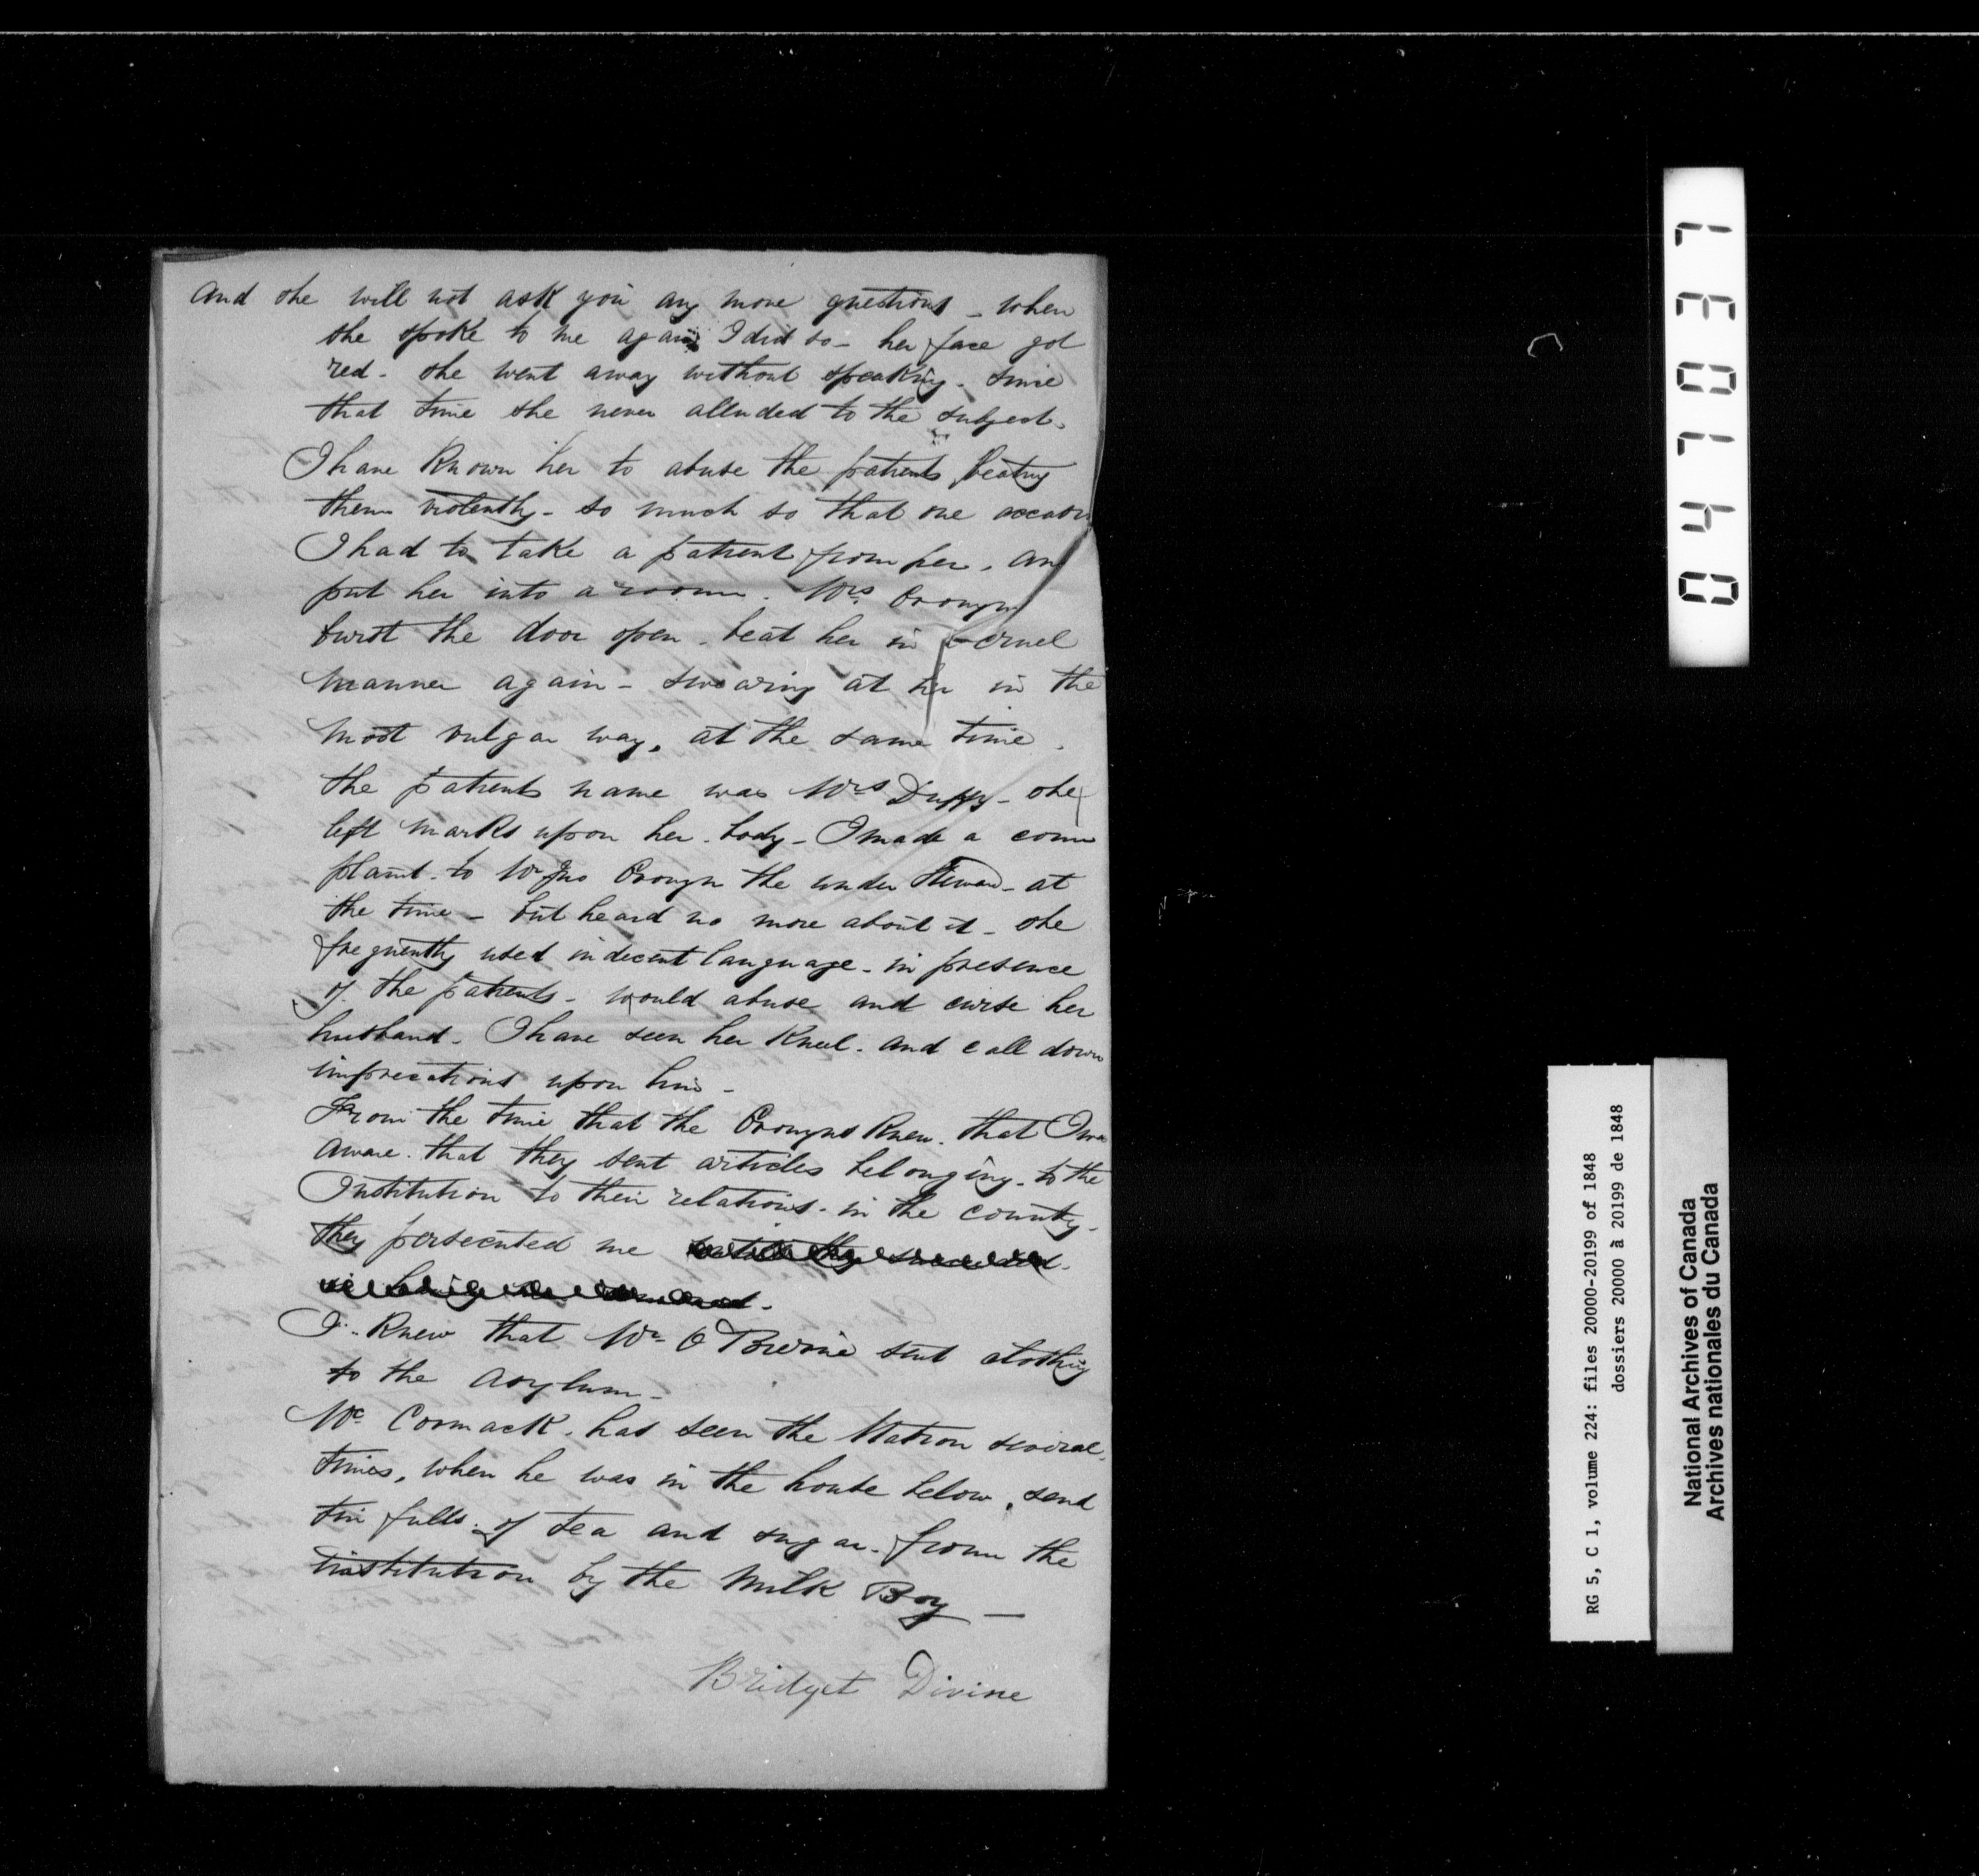 and she will not ask you any more questions - when
she spoke to me again I did so - her face got
red - she went away without speaking. Since
that time she never alluded to the subject.
I have known her to abuse the patients beating
them violently - so much so that one occasion
I had to take a patient from her, and
put her into a room. Mrs. Cronyn
burst the door open - beat her in a cruel
manner again - swearing at her in the
most vulgar way, at the same time.
the patients name was Mrs Duffy - she
left marks upon her body - I made a com
plaint to Mr Jno Cronyn the under Steward - at
the time - but heard no more about it - she
frequently used indecent language - in presence
of the patients - would abuse and curse her
husband. I have seen her kneel and call down
imprecations upon him -
From the time that the Cronyns knew that I was
aware that they sent articles belonging to the
Institution to their relations in the county -
they persecuted me until they succeeded
I knew that Mr O sent clothing
to the Asylum -
Mc Cormack has seen the Matron several
times, when he was in the house below, send
tin fulls of tea and sugar from the
institution by the Milk Boy -
Bridget Divine
047037
RG 5, C 1, volume 224: files 20000-20199 of 1848
dossiers 20000 à 20199 de 1848
National Archives of Canada
Archives nationales du Canada